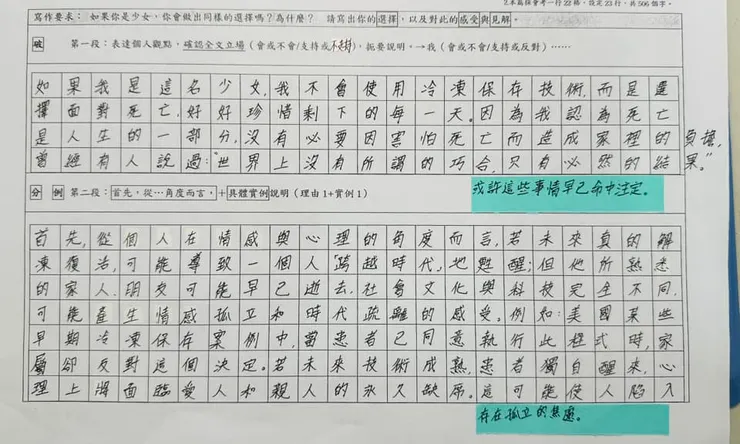 2.本篇採會考一行22格，設定23行，共506個字。
寫作要求：如果你是少女，你會做出同樣的選擇嗎？為什麼？ 請寫出你的選擇，以及對此的感受與見解。
破 第一段：表達個人觀點，確認全文立場（會或不會/支持或不支持），扼要說明。→我（會或不會/支持或反對）……
如果我是這名少女,我不會使用冷凍保存技術,而是選
擇面對死亡,好好珍惜剩下的每一天。因為我認為死亡
是人生的一部分,沒有必要因害怕死亡而造成家裡的負擔,
曾經有人說過:“世界上沒有所謂的巧合,只有必然的結果。”
或許這些事情早已命中注定。
分 例 第二段：首先，從…角度而言，+具體實例說明（理由1+實例1）
首先,從個人在情感與心理的角度而言,若未來真的解
凍復活,可能導致一個人「跨越時代」地甦醒;但他所熟悉
的家人、朋友可能早已逝去,社會文化與科技完全不同,
可能產生情感孤立和時代疏離的感受。例如:美國某些
早期冷凍保存案例中,當患者已同意執行此程式時,家
屬卻反對這個決定。若未來技術成熟,患者獨自醒來,心
理上將面臨愛人和親人的永久缺席。這可能使人陷入
存在孤立的焦慮。